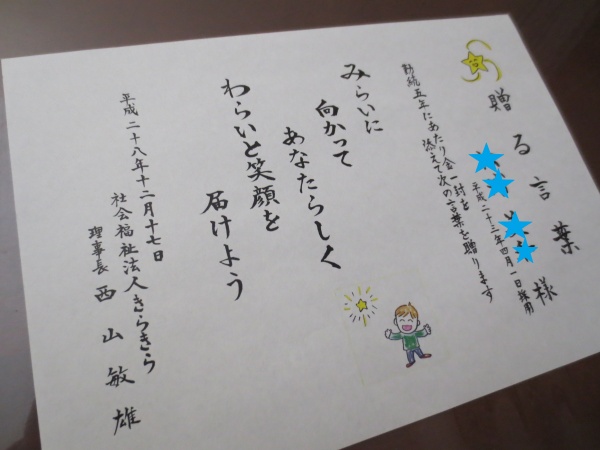 贈る言葉
様
平成二十三年四月一日採用
勤続五年にあたり金一封を
添えて次の言葉を贈ります
みらいに
向かって
あなたらしく
わらいと笑顔を
届けよう
平成二十八年十二月十七日
社会福祉法人きらきら
理事長 西山敏雄